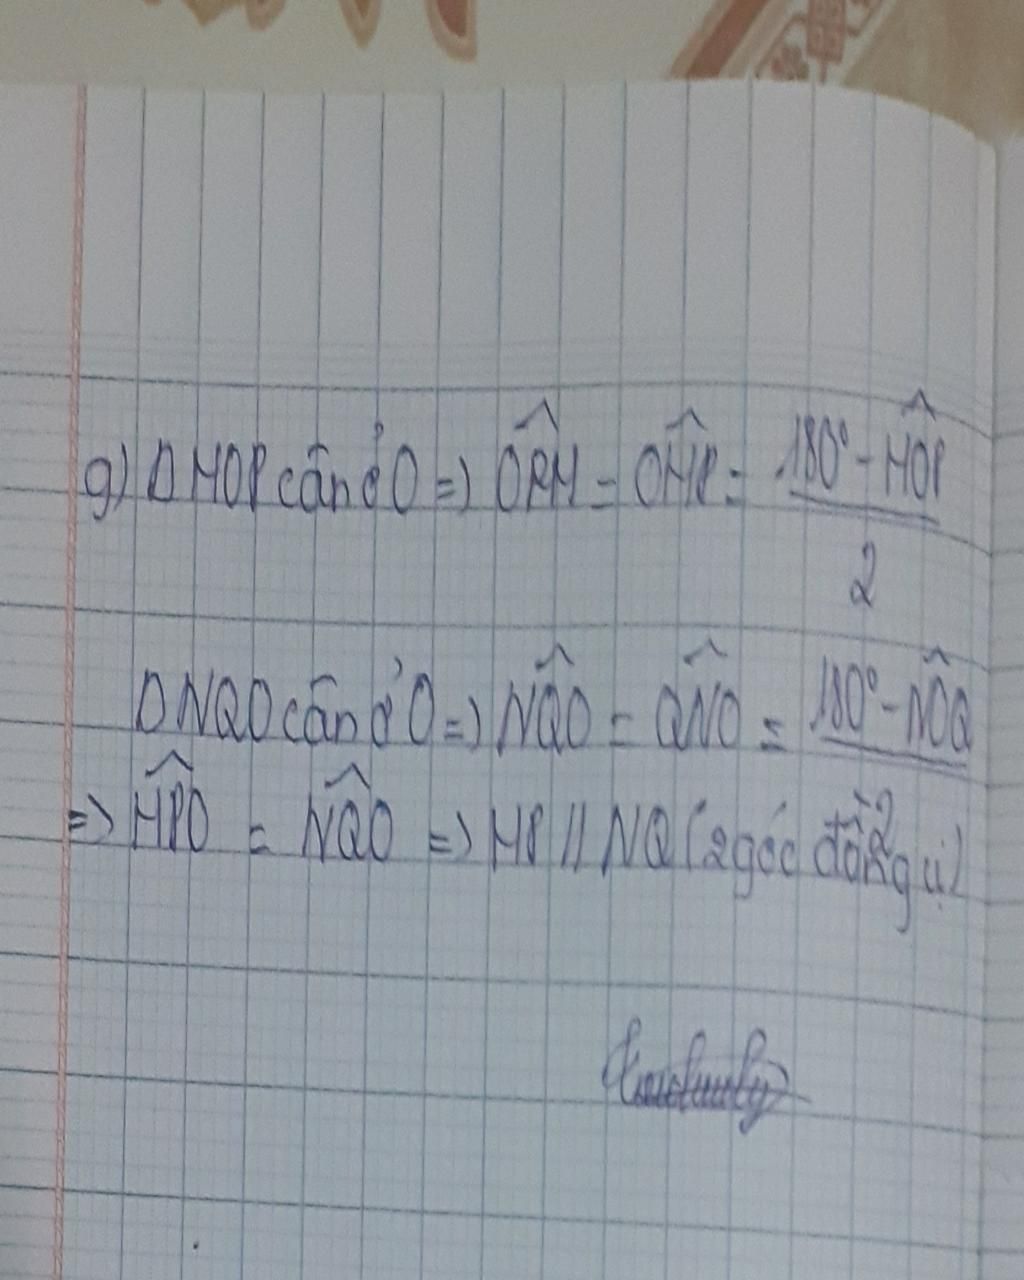 g) Δ MOP cân ở O => OPM = OMP = 180° - MOP
2
Δ NQO cân ở O => NQO = QNO = 180° - NOQ
2
=> MPO = NQO => MP // NQ (2 góc đồng vị)